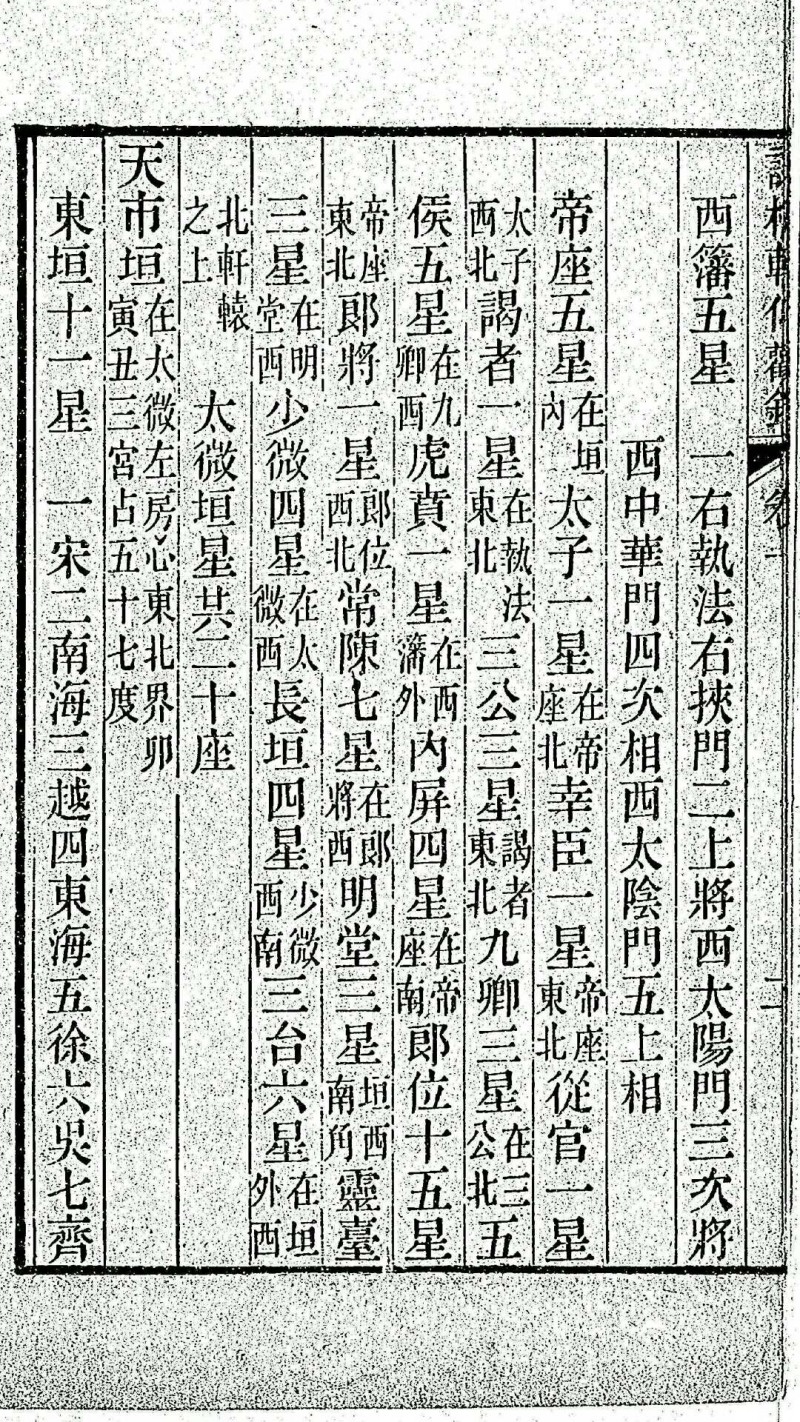 卷一
二
西藩五星 一右執法右挾門二上將西太陽門三次將
西中華門四次相西太陰門五上相
帝座五星在垣內太子一星在帝座北幸臣一星帝座東北從官一星
太子西北謁者一星在執法東北三公三星謁者東北九卿三星在三公北五
侯五星在九卿西虎賁一星在西藩外內屏四星在帝座南郎位十五星
帝座東北郎將一星郎位西北常陳七星在郎將西明堂三星垣西南角靈臺
三星在明堂西少微四星在太微西長垣四星少微西南三台六星在垣外西
北軒轅之上 太微垣星共二十座
天市垣在太微左房心東北界卯寅丑三宮占五十七度
東垣十一星 一宋二南海三越四東海五徐六吳七齊